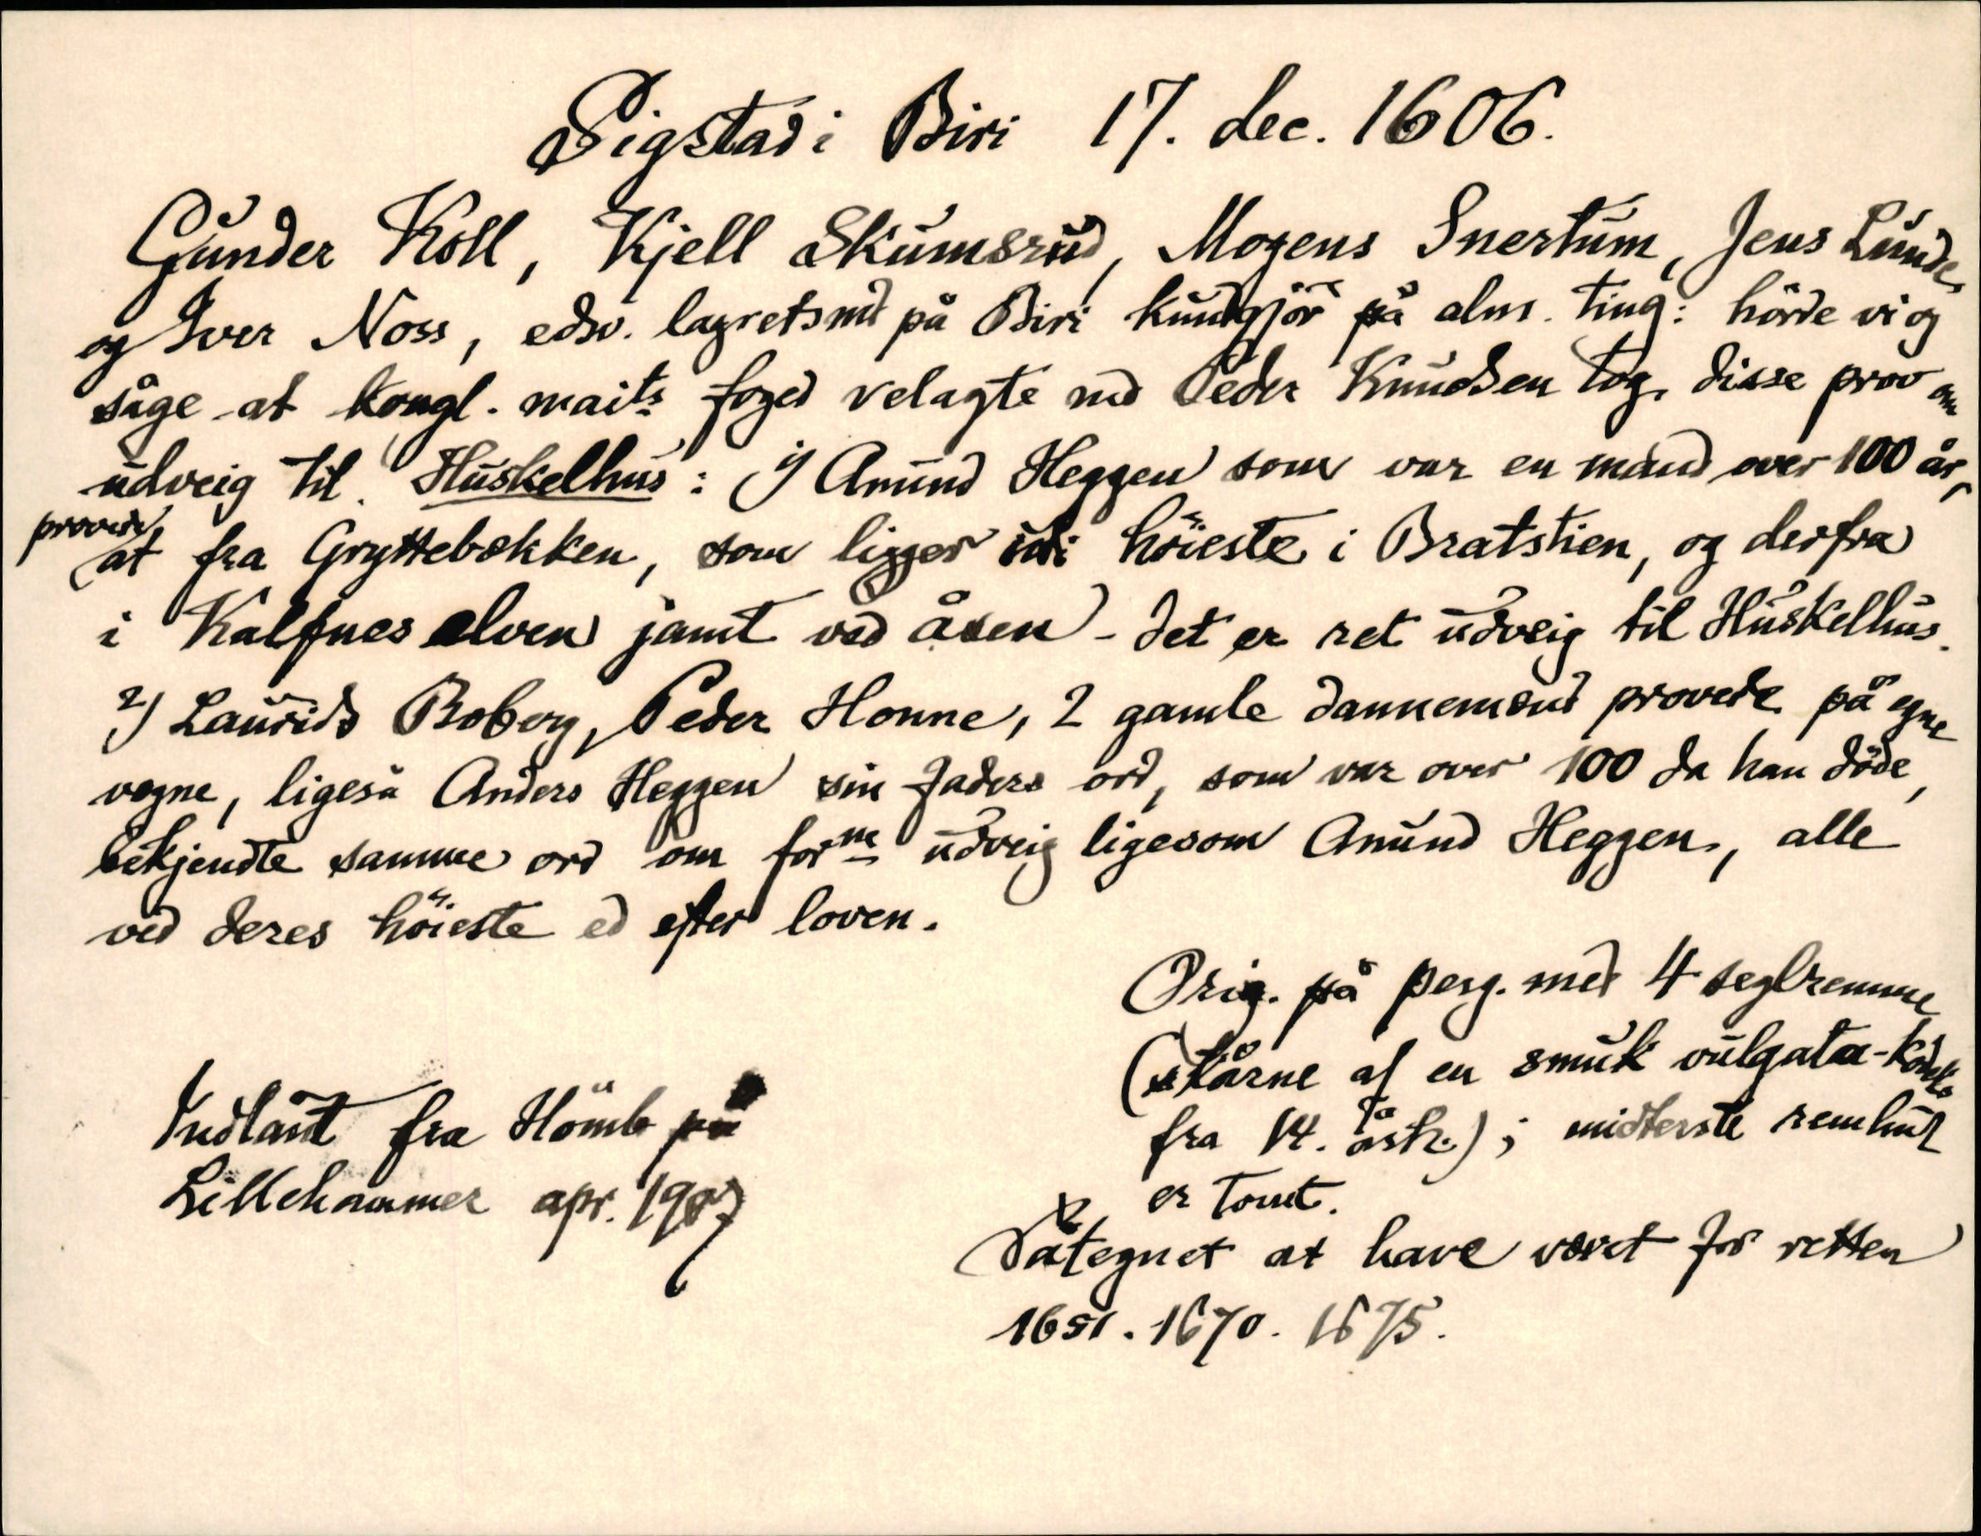 Sigstad i Biri 17. dec. 1606.
Gunder Koll, Kjell Skumsrud, Mogens Snertum, Jens Lunde,
og Iver Noss, edsv. lagretsmd på Biri kundgjör på alm. ting: hörde vi og
såge at kongl. maits foged velagte md Peder Knudsen tog disse prov om
udveig til Huskelhus: 1) Amund Heggen som var en mand over 100 år,
provede,
at fra Gryttebækken, som ligger idi höieste i Bratstien, og derfra
i Kalfnes elven jamt ved åsen - det er ret udveig til Huskelhus.
2) Laurids Boberg, Peder Honne, 2 gamle dannemænd provede på egne
vegne, ligeså Anders Heggen sin faders ord, som var over 100 da han döde,
bekjendte samme ord om forne udveig ligesom Amund Heggen, alle
ved deres höieste ed efter loven.
Orig. på perg. med 4 seglremme
(skårne af en smuk vulgata-kodeks
fra 14. årh.); midterste remhul
er tomt.
Påtegnet at have været for retten
1651. 1670. 1675.
Indlånt fra Hömb på
Lillehammer apr. 1907